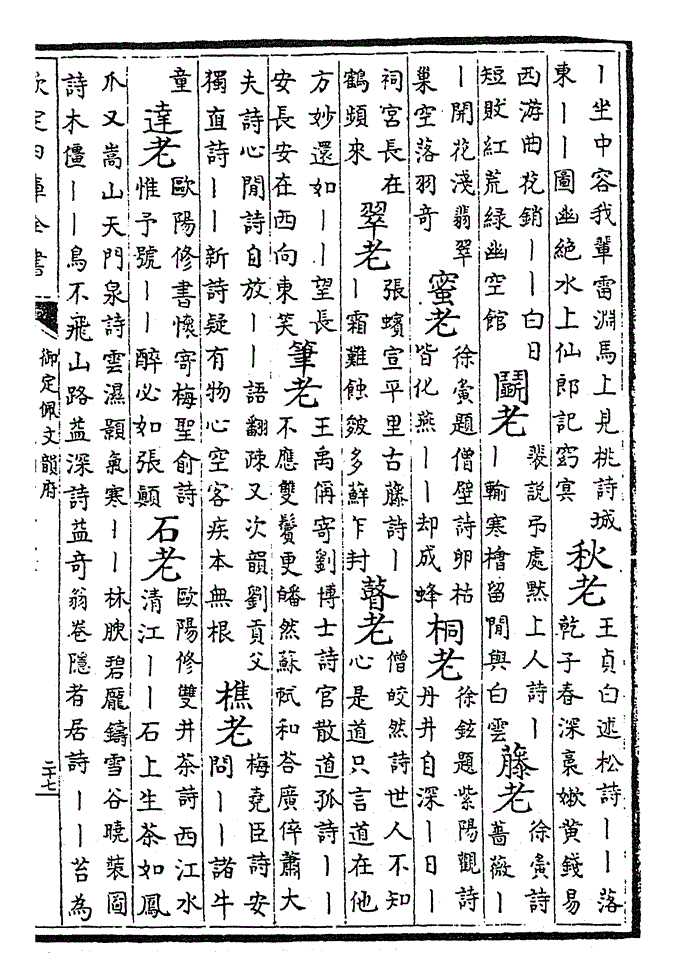 丨坐中容我輩雷淵馬上見桃詩城
東丨丨圖幽絶水上仙郎記窈㝠
秋老
王貞白述松詩丨丨落
乾子春深裛嫰黄錢易
西游曲花銷丨丨白日
短敗紅荒緑幽空館
鬭老
裴說弔處黙上人詩丨
丨輸寒檜留閒與白雲
藤老
徐夤詩
薔薇丨
丨開花淺翡翠
巢空落羽奇
蜜老
徐夤題僧壁詩卵枯
皆化燕丨丨却成蜂
桐老
徐鉉題紫陽觀詩
丹井自深丨日丨
祠宮長在
鶴頻來
翠老
張蠙宣平里古藤詩丨
丨霜難蝕皴多蘚乍封
瞽老
僧皎然詩世人不知
心是道只言道在他
方妙還如丨丨望長
安長安在西向東笑
筆老
王禹偁寄劉博士詩官散道孤詩丨丨
不應雙鬢更皤然蘇軾和荅廣倅蕭大
夫詩心閒詩自放丨丨語翻疎又次韻劉貢父
獨直詩丨丨新詩疑有物心空客疾本無根
樵老
梅堯臣詩安
問丨丨諸牛
童
達老
歐陽修書懷寄梅聖俞詩
惟予號丨丨醉必如張顛
石老
歐陽修雙井茶詩西江水
清江丨丨石上生茶如鳳
爪又嵩山天門泉詩雲濕顥氣寒丨丨林腴碧龎鑄雪谷曉裝圖
詩木僵丨丨鳥不飛山路益深詩益奇翁卷隱者居詩丨丨苔為
欽定四庫全書
御定佩文韻府
二十七